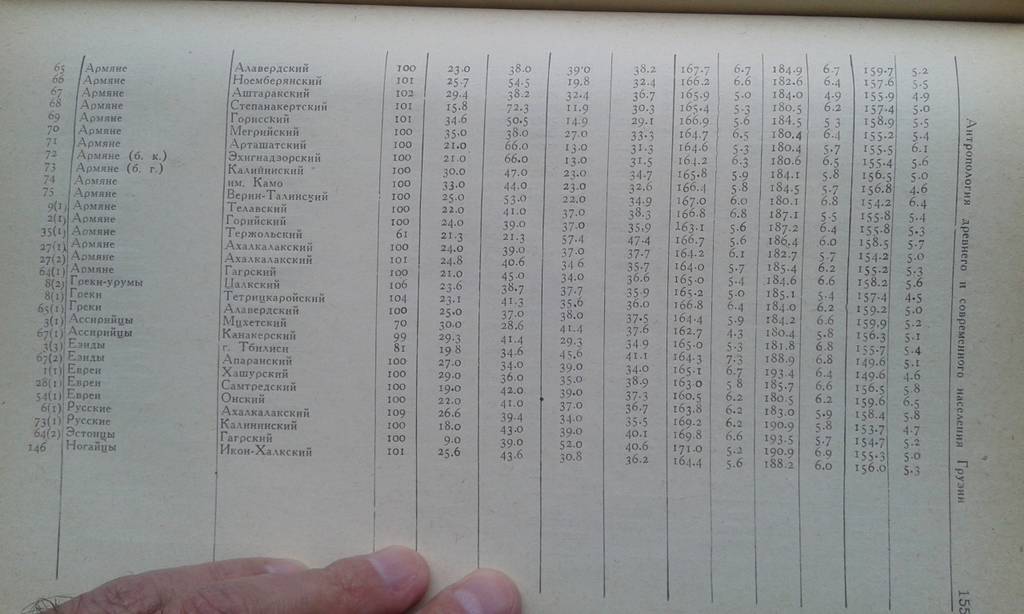 65 Армяне Алавердский 100 23.0 38.0 39.0 38.2 167.7 6.7 184.9 6.7 159.7 5.2
66 Армяне Ноемберянский 101 25.7 54.5 19.8 32.4 166.2 6.6 182.6 6.4 157.6 5.5
67 Армяне Аштаракский 102 29.4 38.2 32.4 36.7 165.9 5.0 184.0 4.9 155.9 4.9
68 Армяне Степанакертский 101 15.8 72.3 11.9 30.3 165.4 5.3 180.5 6.2 157.4 5.0
69 Армяне Горисский 101 34.6 50.5 14.9 29.1 166.9 5.6 184.5 5.3 158.9 5.5
70 Армяне Мегрийский 100 35.0 38.0 27.0 33.3 164.7 6.5 180.4 6.4 155.2 5.4
71 Армяне Арташатский 100 21.0 66.0 13.0 31.3 164.6 5.3 180.4 5.7 155.5 6.1
72 Армяне (б. к.) Эхигнадзорский 100 21.0 66.0 13.0 31.5 164.2 6.3 180.6 6.5 155.4 5.6
73 Армяне (б. г.) Калининский 100 30.0 47.0 23.0 34.7 165.8 5.9 184.1 5.8 156.5 5.0
74 Армяне им. Камо 100 33.0 44.0 23.0 32.6 166.4 5.8 184.5 5.7 156.8 4.6
75 Армяне Верин-Талинский 100 25.0 53.0 22.0 34.9 167.0 6.0 180.1 6.8 154.2 6.4
9(1) Армяне Телавский 100 22.0 41.0 37.0 38.3 166.8 6.8 187.1 5.5 155.8 5.4
2(1) Армяне Горийский 100 24.0 39.0 37.0 35.9 163.1 5.6 187.2 6.4 155.8 5.3
35(1) Армяне Тержольский 61 21.3 21.3 57.4 47.4 166.7 5.6 186.4 6.0 158.5 5.7
27(1) Армяне Ахалкалакский 100 24.0 39.0 37.0 37.7 164.2 6.1 182.7 5.7 154.2 5.0
27(2) Армяне Ахалкалакский 101 24.8 40.6 34.6 35.7 164.0 5.7 185.4 6.2 155.2 5.3
64(1) Армяне Гагрский 100 21.0 45.0 34.0 36.6 165.0 5.4 184.6 6.6 158.2 5.6
8(2) Греки-урумы Цалкский 106 23.6 38.7 37.7 35.9 165.2 5.0 185.1 5.4 157.4 4.5
8(1) Греки Тетрицкаройский 104 23.1 41.3 35.6 36.0 166.8 6.4 184.0 6.2 159.2 5.0
65(1) Греки Алавердский 100 25.0 37.0 38.0 37.5 164.4 5.9 184.2 6.6 159.9 5.2
3(1) Ассирийцы Мцхетский 70 30.0 28.6 41.4 37.6 162.7 4.3 180.4 5.8 156.3 5.1
67(1) Ассирийцы Канакерский 99 29.3 41.4 29.3 34.9 165.0 5.3 181.8 6.8 155.7 5.4
3(3) Езиды г. Тбилиси 81 19.8 34.6 45.6 41.1 164.3 7.3 188.9 6.8 149.6 5.1
67(2) Езиды Апаранский 100 27.0 34.0 39.0 34.0 165.1 6.7 193.4 6.4 149.6 4.6
1(1) Евреи Хашурский 100 29.0 36.0 35.0 38.9 163.0 5.8 185.7 6.6 156.5 5.8
28(1) Евреи Самтредский 100 19.0 42.0 39.0 37.3 160.5 6.2 180.5 6.2 159.6 6.5
54(1) Евреи Онский 100 22.0 41.0 37.0 36.7 163.8 6.2 183.0 5.9 158.4 5.8
6(1) Русские Ахалкалакский 109 26.6 39.4 34.0 35.5 169.2 6.2 190.9 5.8 153.7 4.7
73(1) Русские Калининский 100 18.0 43.0 39.0 40.1 169.8 6.6 193.5 5.7 154.7 5.2
64(2) Эстонцы Гагрский 100 9.0 39.0 52.0 40.6 171.0 5.2 190.9 6.9 155.3 5.0
146 Ногайцы Икон-Халкский 101 25.6 43.6 30.8 36.2 164.4 5.6 188.2 6.0 156.0 5.3
Антропология древнего и современного населения Грузии 155